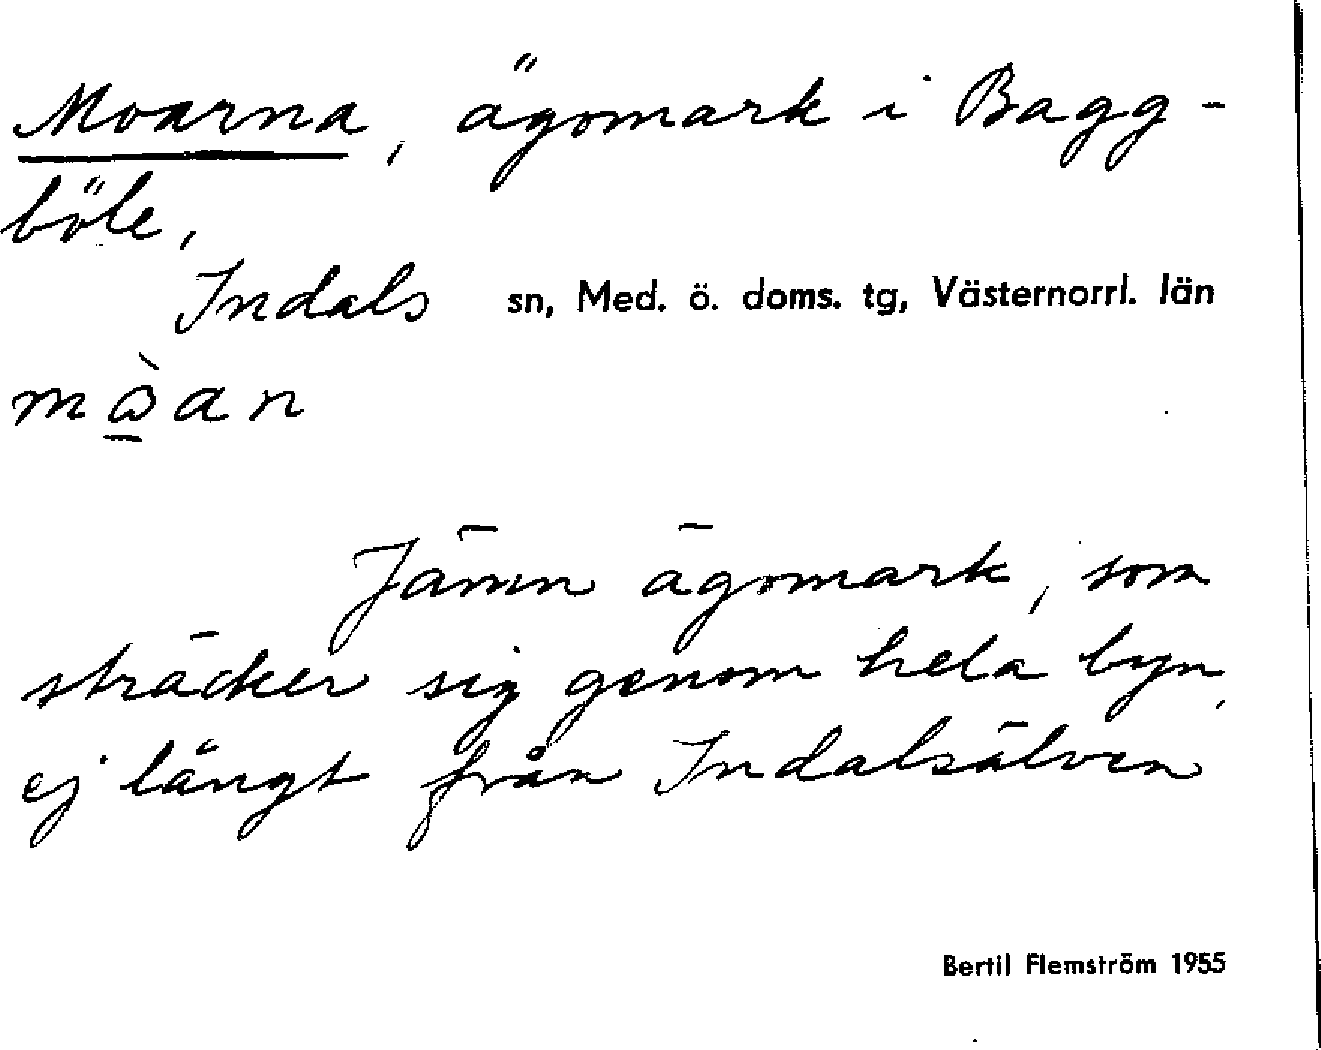 Moarna, ägomark i Bagg-
böle,
Indals sn, Med. ö. doms. tg, Västernorrl. län
Jämn ägomark, som
sträcker sig genom hela byn,
ej långt från Indalsälven
Bertil Flemström 1955